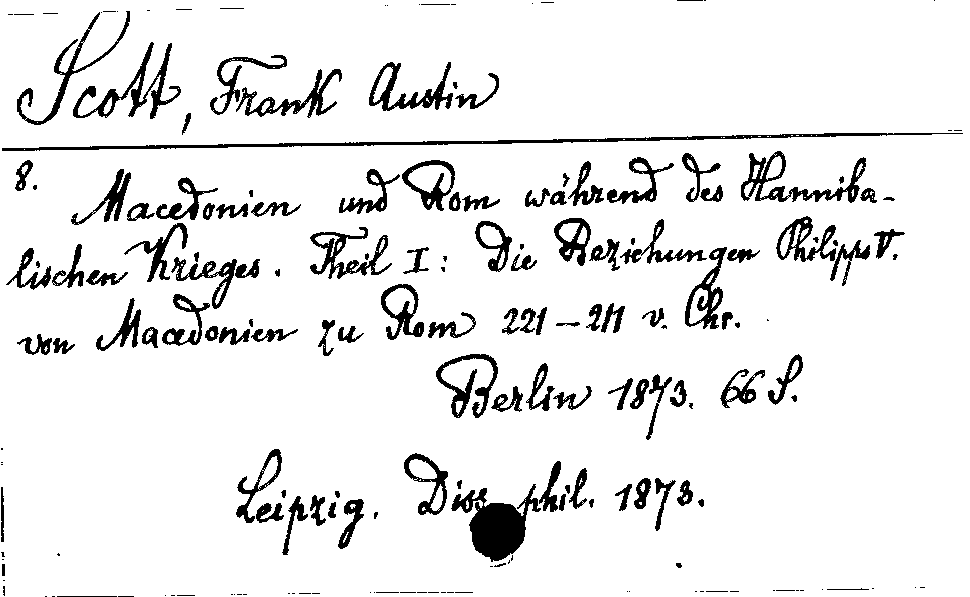 Scott, Frank Austin
8.
Macedonien und Rom während des Hanniba-
lischen Krieges. Theil I: Die Beziehungen Philipps V.
von Macedonien zu Rom 221-211 v. Chr.
Berlin 1873. 66 S.
Leipzig. Diss phil. 1873.